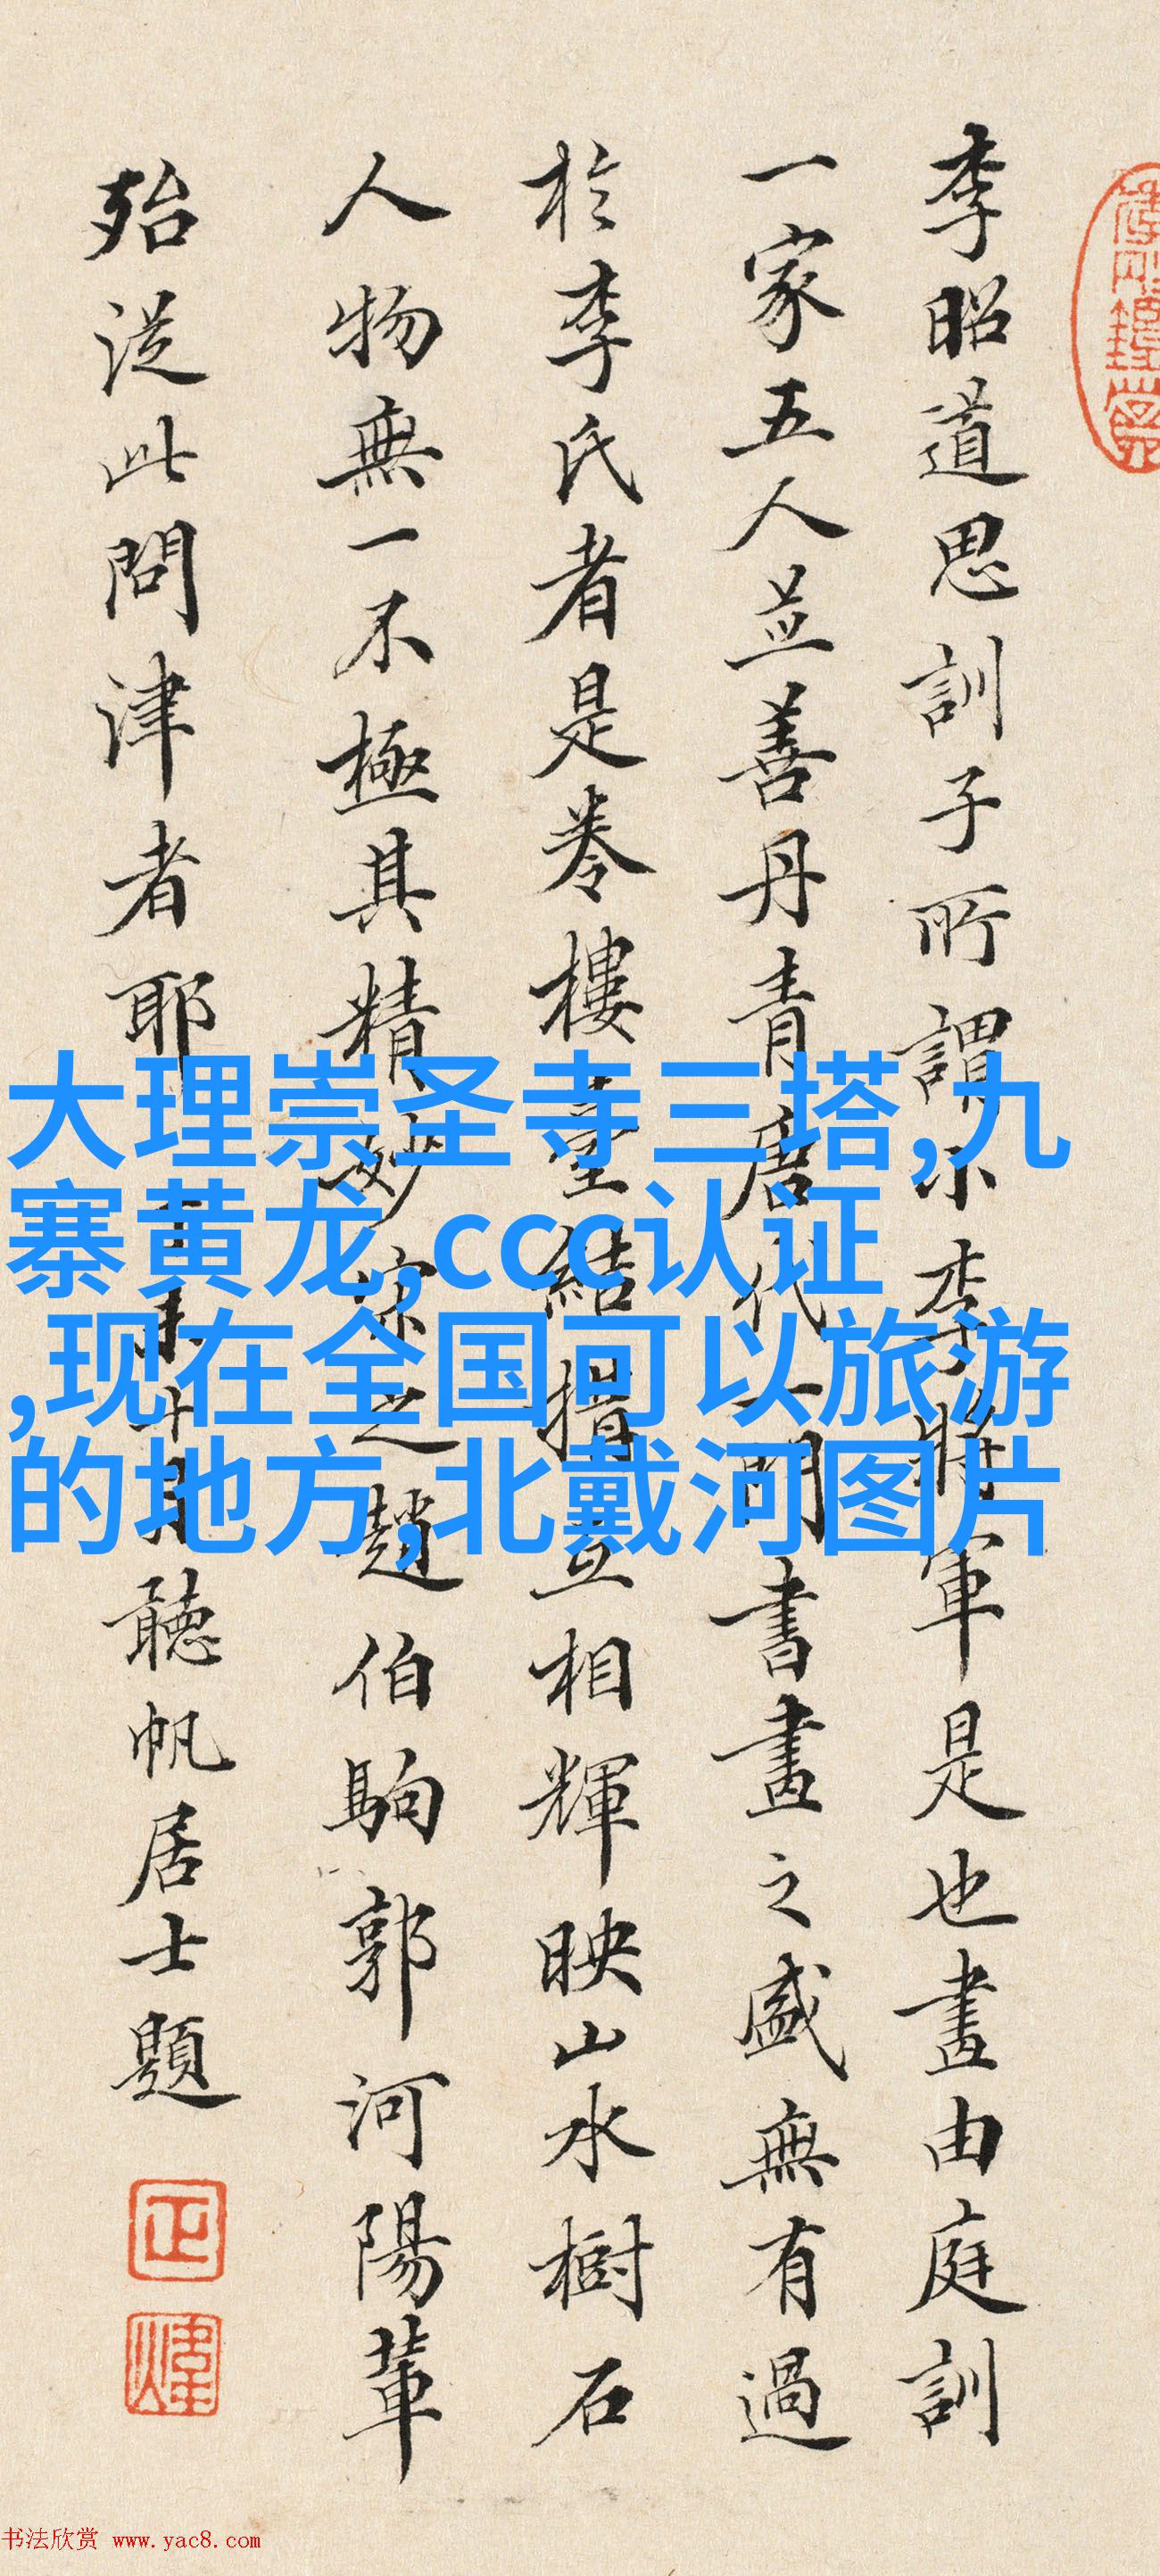 李昭道思訓子所謂小李將軍是也畫由庭訓
一家五人並善丹青唐代一門書畫之盛無有過
於李氏者是卷樓臺結搆互相輝映山水樹石
人物無一不極其精妙宋之趙伯駒郭河陽輩
殆從此問津者耶十月聽帆居士題
正
煒
大理崇圣寺三塔,九
寨黄龙,ccc认证
,现在全国可以旅游
的地方,北戴河图片
书法欣赏 www.yac8.com